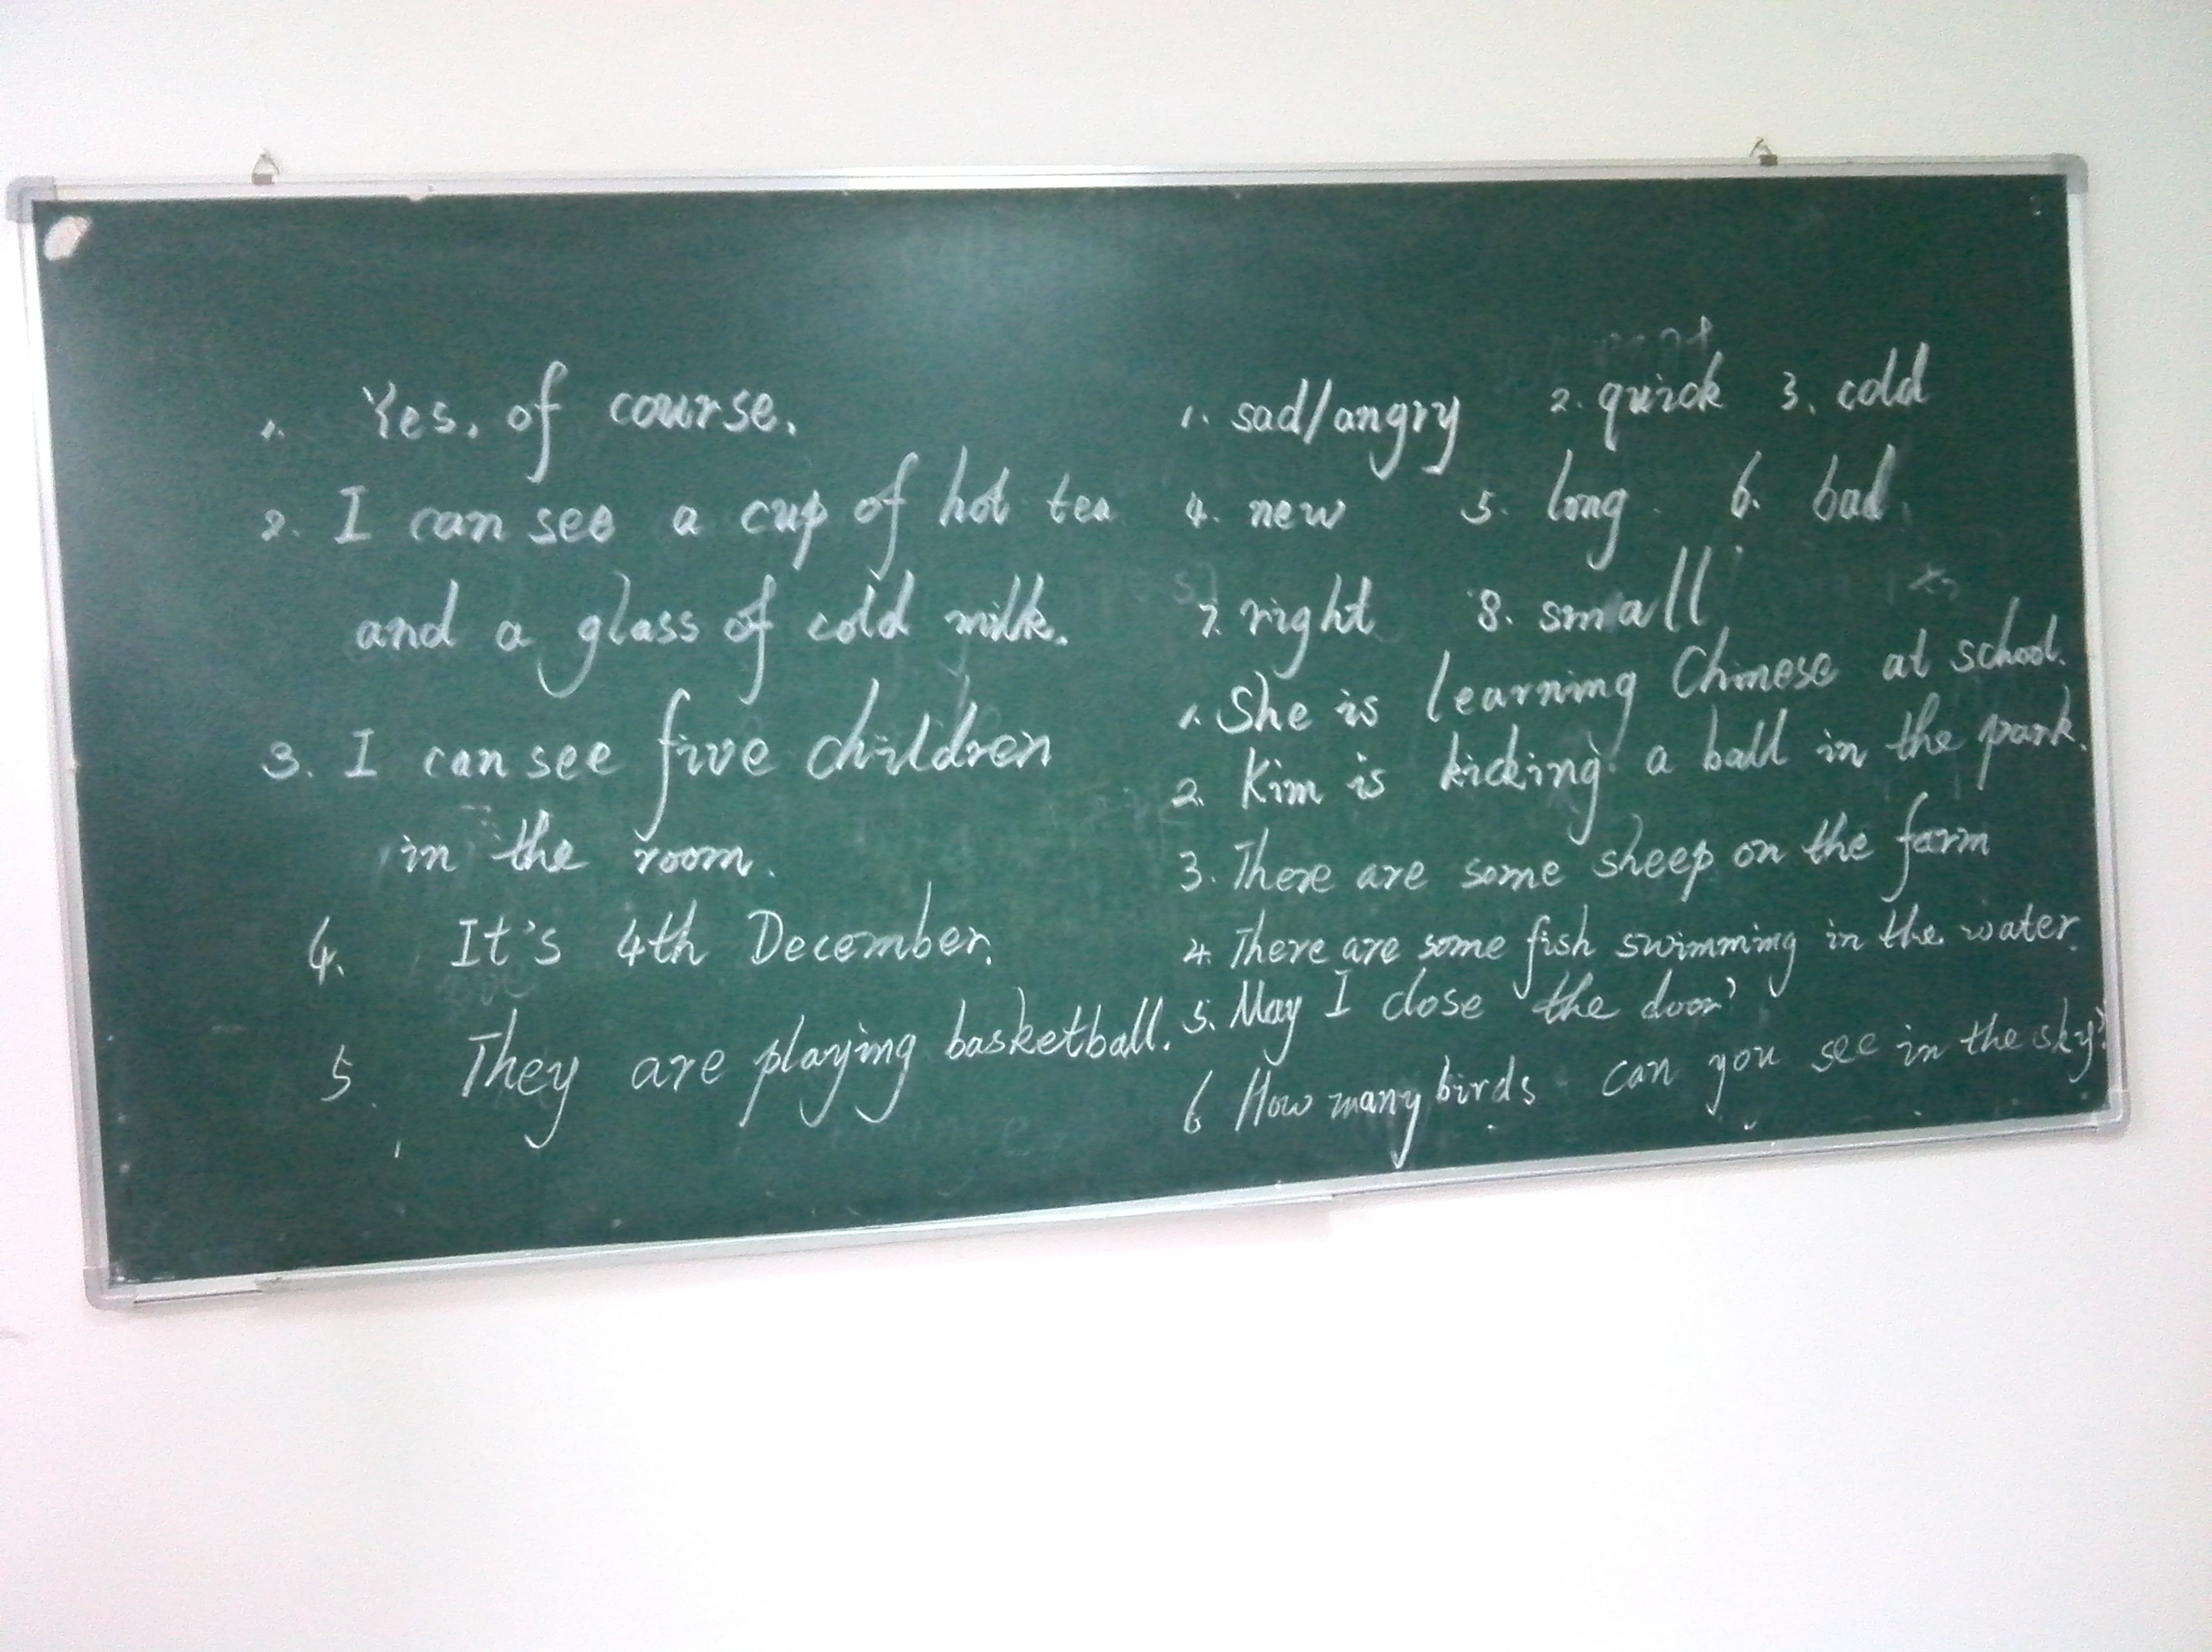 1. Yes, of course.
2. I can see a cup of hot tea
and a glass of cold milk.
3. I can see five children
in the room.
4. It's 4th December.
5. They are playing basketball.
1. sad/angry 2. quick 3. cold
4. new 5. long 6. bad
7. right 8. small
1. She is learning Chinese at school.
2. Kim is kicking a ball in the park.
3. There are some sheep on the farm
4. There are some fish swimming in the water.
5. May I close the door?
6 How many birds can you see in the sky?